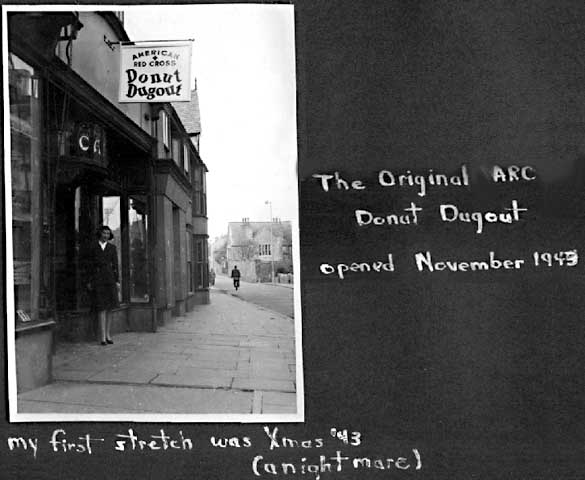 AMERICAN
RED CROSS
Donut
Dugout
CA
The Original ARC
Donut Dugout
opened November 1943
my first stretch was Xmas '43
(a nightmare)